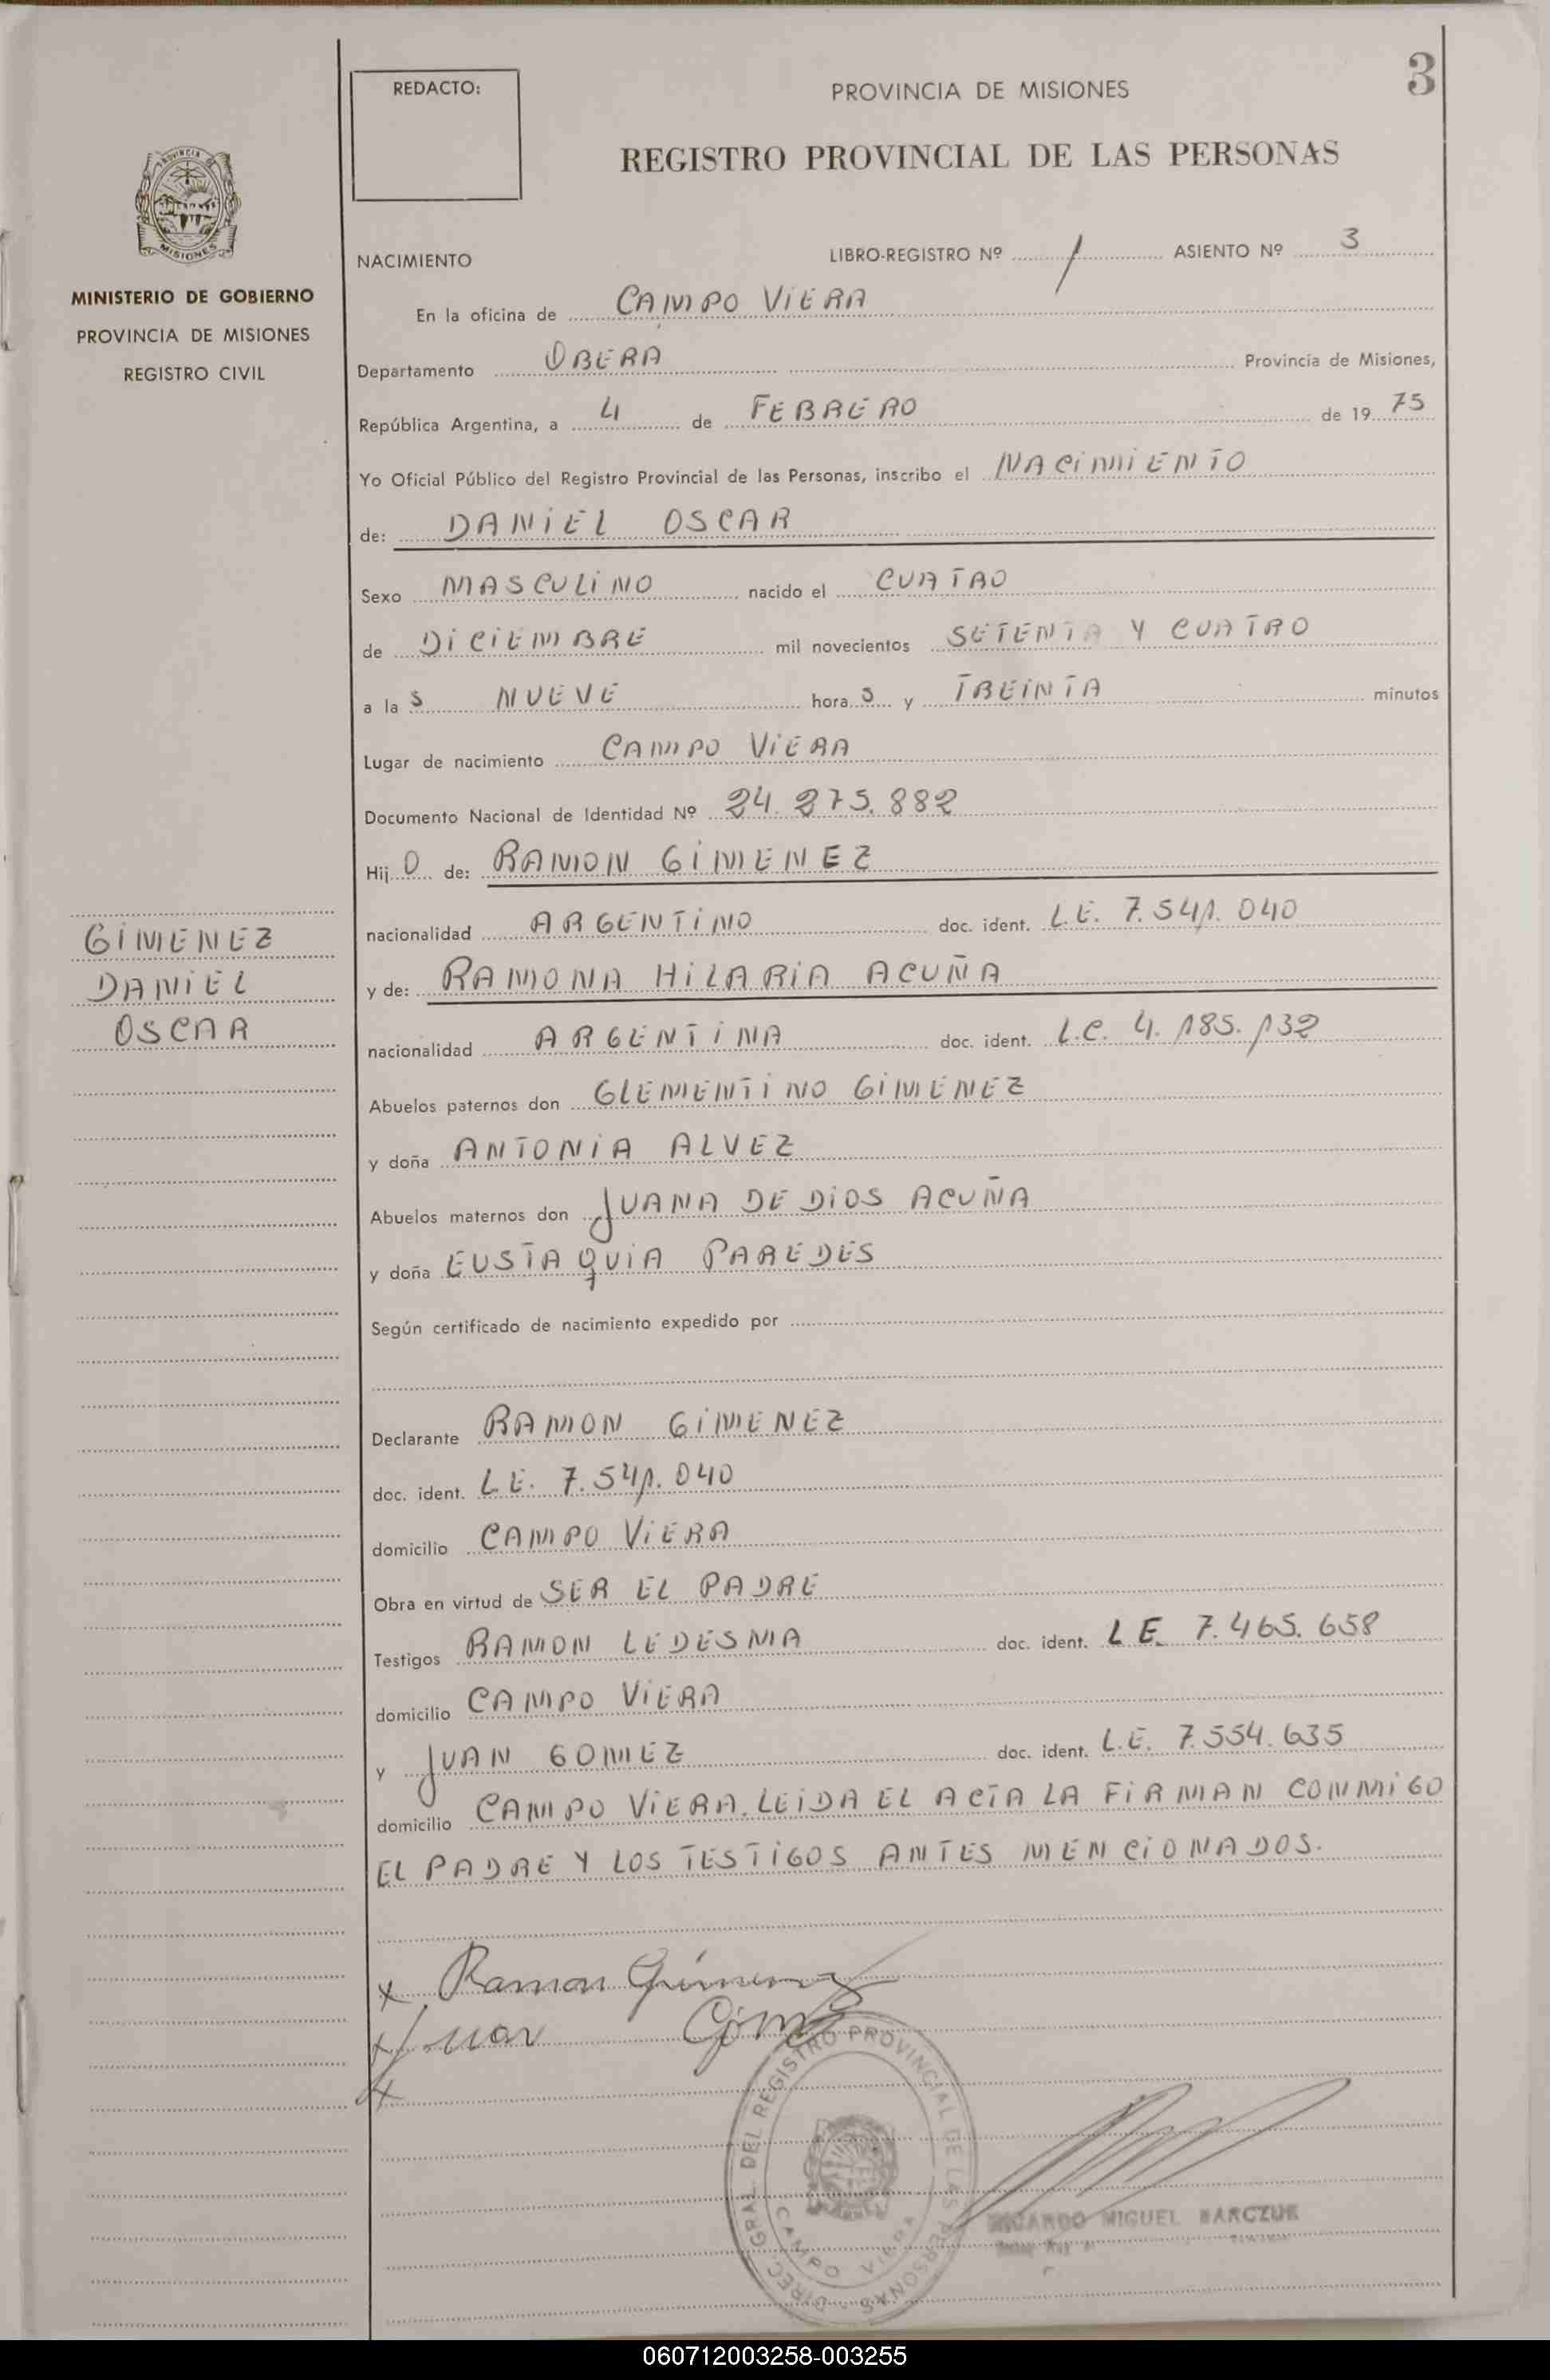 REDACTO:
PROVINCIA DE MISIONES
3
REGISTRO PROVINCIAL DE LAS PERSONAS
PROVINCIA DE
MISIONES
MINISTERIO DE GOBIERNO
PROVINCIA DE MISIONES
REGISTRO CIVIL
NACIMIENTO
LIBRO-REGISTRO Nº 1 ASIENTO Nº 3
En la oficina de CAMPO VIERA
Departamento OBERA Provincia de Misiones,
República Argentina, a 4 de FEBRERO de 1975
Yo Oficial Público del Registro Provincial de las Personas, inscribo el NACIMIENTO
de: DANIEL OSCAR
Sexo MASCULINO nacido el CUATRO
de DICIEMBRE mil novecientos SETENTA Y CUATRO
a las NUEVE horas y TREINTA minutos
Lugar de nacimiento CAMPO VIERA
Documento Nacional de Identidad Nº 24.275.882
Hijo de: RAMON GIMENEZ
nacionalidad ARGENTINO doc. ident. L.E. 7.541.040
y de: RAMONA HILARIA ACUÑA
nacionalidad ARGENTINA doc. ident. L.C. 4.185.132
GIMENEZ
DANIEL
OSCAR
Abuelos paternos don CLEMENTINO GIMENEZ
y doña ANTONIA ALVEZ
Abuelos maternos don JUANA DE DIOS ACUÑA
y doña EUSTAQUIA PAREDES
Según certificado de nacimiento expedido por
Declarante RAMON GIMENEZ
doc. ident. L.E. 7.541.040
domicilio CAMPO VIERA
Obra en virtud de SER EL PADRE
Testigos RAMON LEDESMA doc. ident. L.E. 7.465.658
domicilio CAMPO VIERA
y JUAN GOMEZ doc. ident. L.E. 7.554.635
domicilio CAMPO VIERA. LEIDA EL ACTA LA FIRMAN CONMIGO
EL PADRE Y LOS TESTIGOS ANTES MENCIONADOS.
x Ramon Gimenez
x Juan Gómez
x
DIREC. GRAL. DEL REGISTRO PROVINCIAL DE LAS PERSONAS
CAMPO VIERA
RICARDO MIGUEL BARCZUK
060712003258-003255